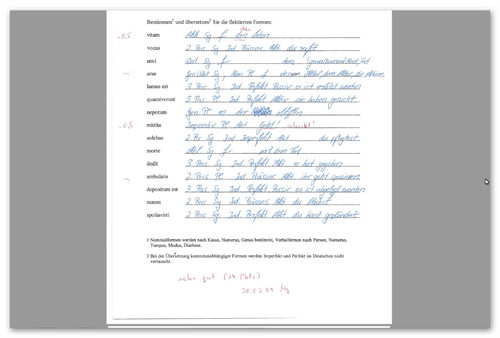 Bestimmen¹ und übersetzen² Sie die flektierten Formen:
vitam Akk. Sg f
vocas 2. Pers Sg Ind Präsens Akt. du rufst
neci Dat Sg f dem
arae Gen/Dat Sg, Nom Pl f
laesus est 3. Pers Sg Ind Perfekt Passiv es ist verletzt worden
quaesiverunt 3. Pers Pl. Ind Perfekt Aktiv sie haben gesucht
nepotum Gen Pl m der
mittite Imperativ Pl Akt.
solebas 2. Pers Sg Ind Imperfekt Akt du pflegtest
morte Abl. Sg f mit dem Tod
dedit 3. Pers Sg Ind Perfekt Akt. er hat gegeben
ambulatis 2. Pers Pl Ind Präsens Akt. ihr geht spazieren
depositum est 3. Pers Sg Ind Perfekt Passiv es ist abgelegt worden
manes 2. Pers Sg Ind Präsens Akt du bleibst
spoliavisti 2. Pers Sg Ind. Perfekt Akt du hast geplündert
1 Nominalformen werden nach Kasus, Numerus, Genus bestimmt, Verbalformen nach Person, Numerus,
Tempus, Modus, Diathese.
2 Bei der Übersetzung kontextunabhängiger Formen werden Imperfekt und Perfekt im Deutschen nicht
vertauscht.
sehr gut (14 Pkte)